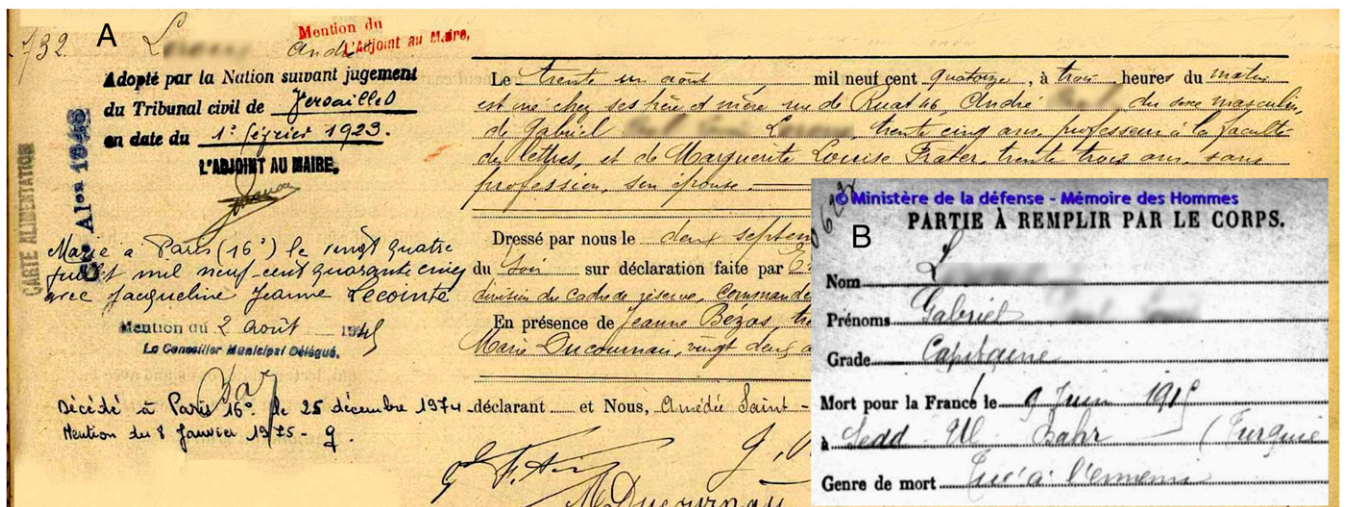 A
732 André
Mention du
L'Adjoint au Maire,
Adopté par la Nation suivant jugement
du Tribunal civil de Versailles
en date du 1º février 1923.
L'ADJOINT AU MAIRE,
CARTE ALIMENTATION
1948
Marié à Paris (16º) le vingt quatre
juillet mil neuf cent quarante cinq
avec Jacqueline Jeanne Lecointe
Mention du 2 août 1945
Le Conseiller Municipal Délégué,
Décédé à Paris 16º. le 25 décembre 1974
Mention du 8 Janvier 1975 -
Le trente un août mil neuf cent quatorze, à trois heures du matin
est né chez ses père et mère rue de 46, André du sexe masculin,
de Gabriel trente cinq ans, professeur à la faculté
des lettres, et de Marguerite Louise Frater, trente trois ans, sans
profession, son épouse.
Dressé par nous le deux septem
du soir sur déclaration faite par
division du cadre de réserve, commande
En présence de Jeanne Bézos, tre
Marie Ducournau, vingt deux a
déclarant et Nous, Amédée Saint-
M Ducournau
© Ministère de la défense - Mémoire des Hommes
B
PARTIE À REMPLIR PAR LE CORPS.
Nom L
Prénoms Gabriel
Grade Capitaine
Mort pour la France le 9 Juin 1915
à Sedd Ul Bahr (Turquie
Genre de mort Tué à l'ennemi